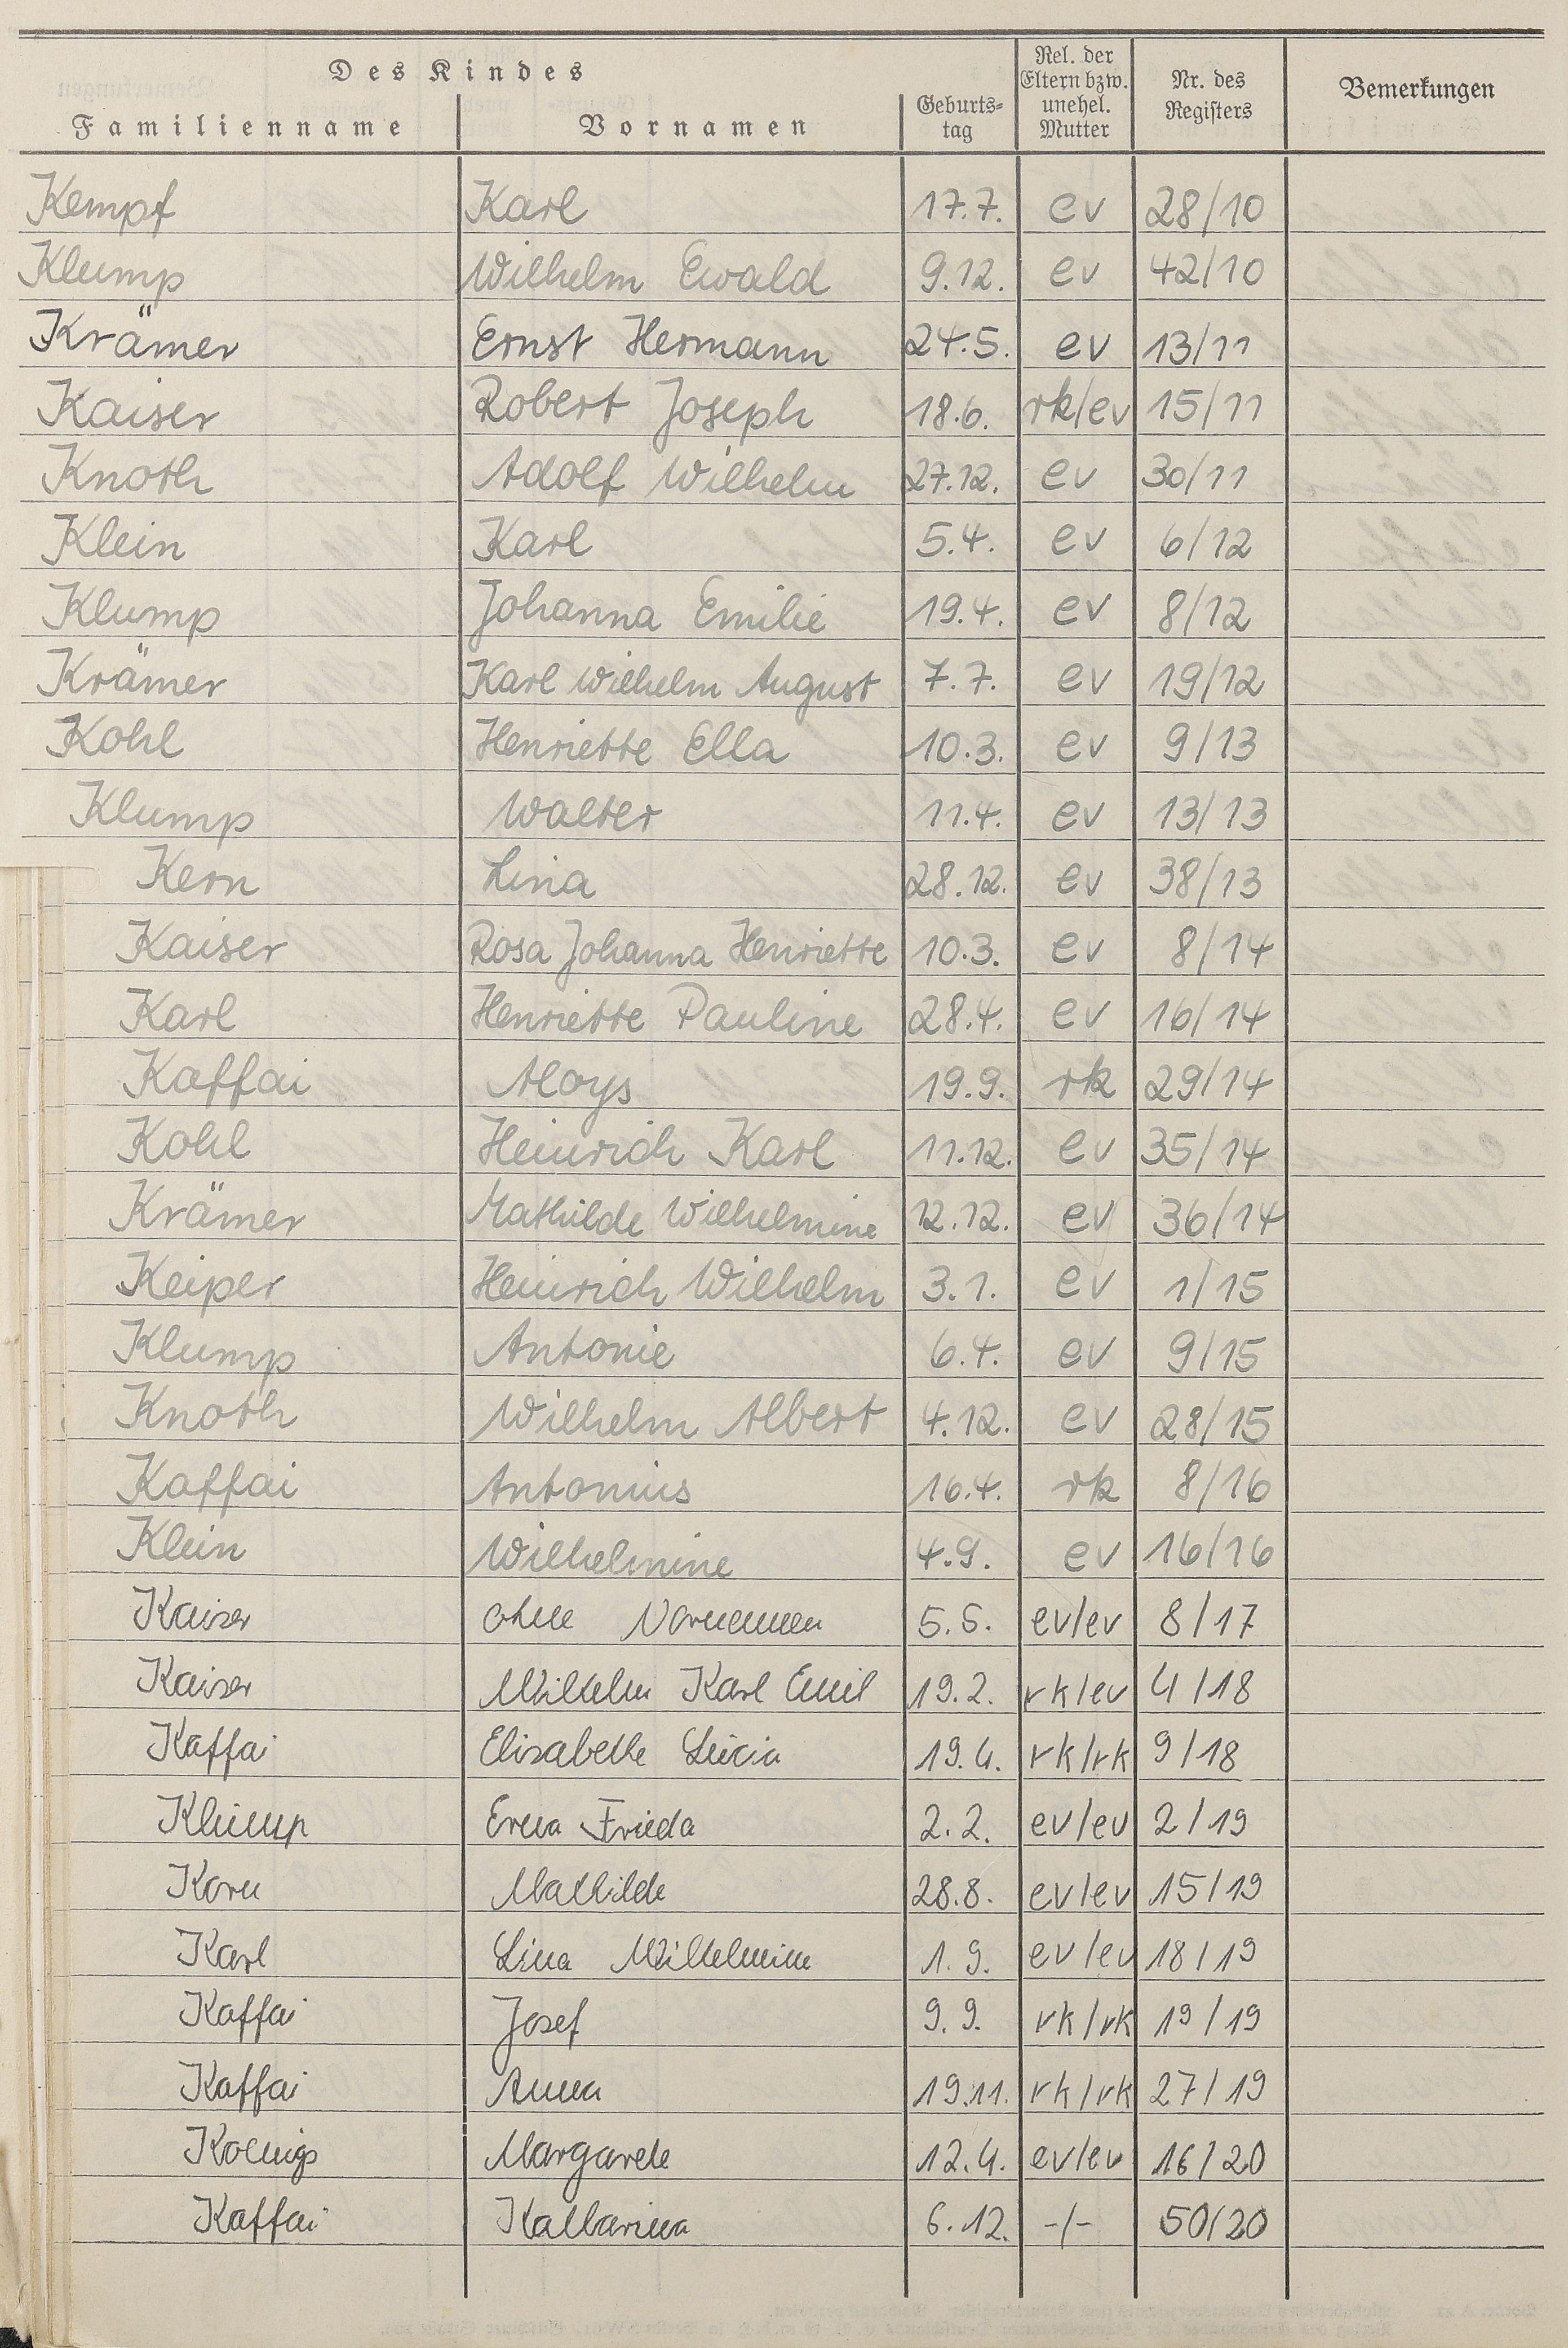 Des Kindes
Familienname Vornamen Geburts-tag Rel. der Eltern bzw. unehel. Mutter Nr. des Registers Bemerkungen
Kempf Karl 17.7. ev 28/10
Klump Wilhelm Ewald 9.12. ev 42/10
Krämer Ernst Hermann 24.5. ev 13/11
Kaiser Robert Joseph 18.6. rk/ev 15/11
Knoth Adolf Wilhelm 27.12. ev 30/11
Klein Karl 5.4. ev 6/12
Klump Johanna Emilie 19.4. ev 8/12
Krämer Karl Wilhelm August 7.7. ev 19/12
Kohl Henriette Ella 10.3. ev 9/13
Klump Walter 11.4. ev 13/13
Kern Lina 28.12. ev 38/13
Kaiser Rosa Johanna Henriette 10.3. ev 8/14
Karl Henriette Pauline 28.4. ev 16/14
Kaffai Aloys 19.9. rk 29/14
Kohl Heinrich Karl 11.12. ev 35/14
Krämer Mathilde Wilhelmine 12.12. ev 36/14
Keiper Heinrich Wilhelm 3.1. ev 1/15
Klump Antonie 6.4. ev 9/15
Knoth Wilhelm Albert 4.12. ev 28/15
Kaffai Antonius 16.4. rk 8/16
Klein Wilhelmine 4.9. ev 16/16
Kaiser ohne Vornamen 5.6. ev/ev 8/17
Kaiser Wilhelm Karl Emil 19.2. rk/ev 4/18
Kaffai Elisabethe Lucia 19.4. rk/rk 9/18
Klump Erna Frieda 2.2. ev/ev 2/19
Korn Mathilde 28.8. ev/ev 15/19
Karl Lina Wilhelmine 1.9. ev/ev 18/19
Kaffai Josef 9.9. rk/rk 19/19
Kaffai Anna 19.11. rk/rk 27/19
Koenigs Margarete 12.4. ev/ev 16/20
Kaffai Katharina 6.12. -/- 50/20